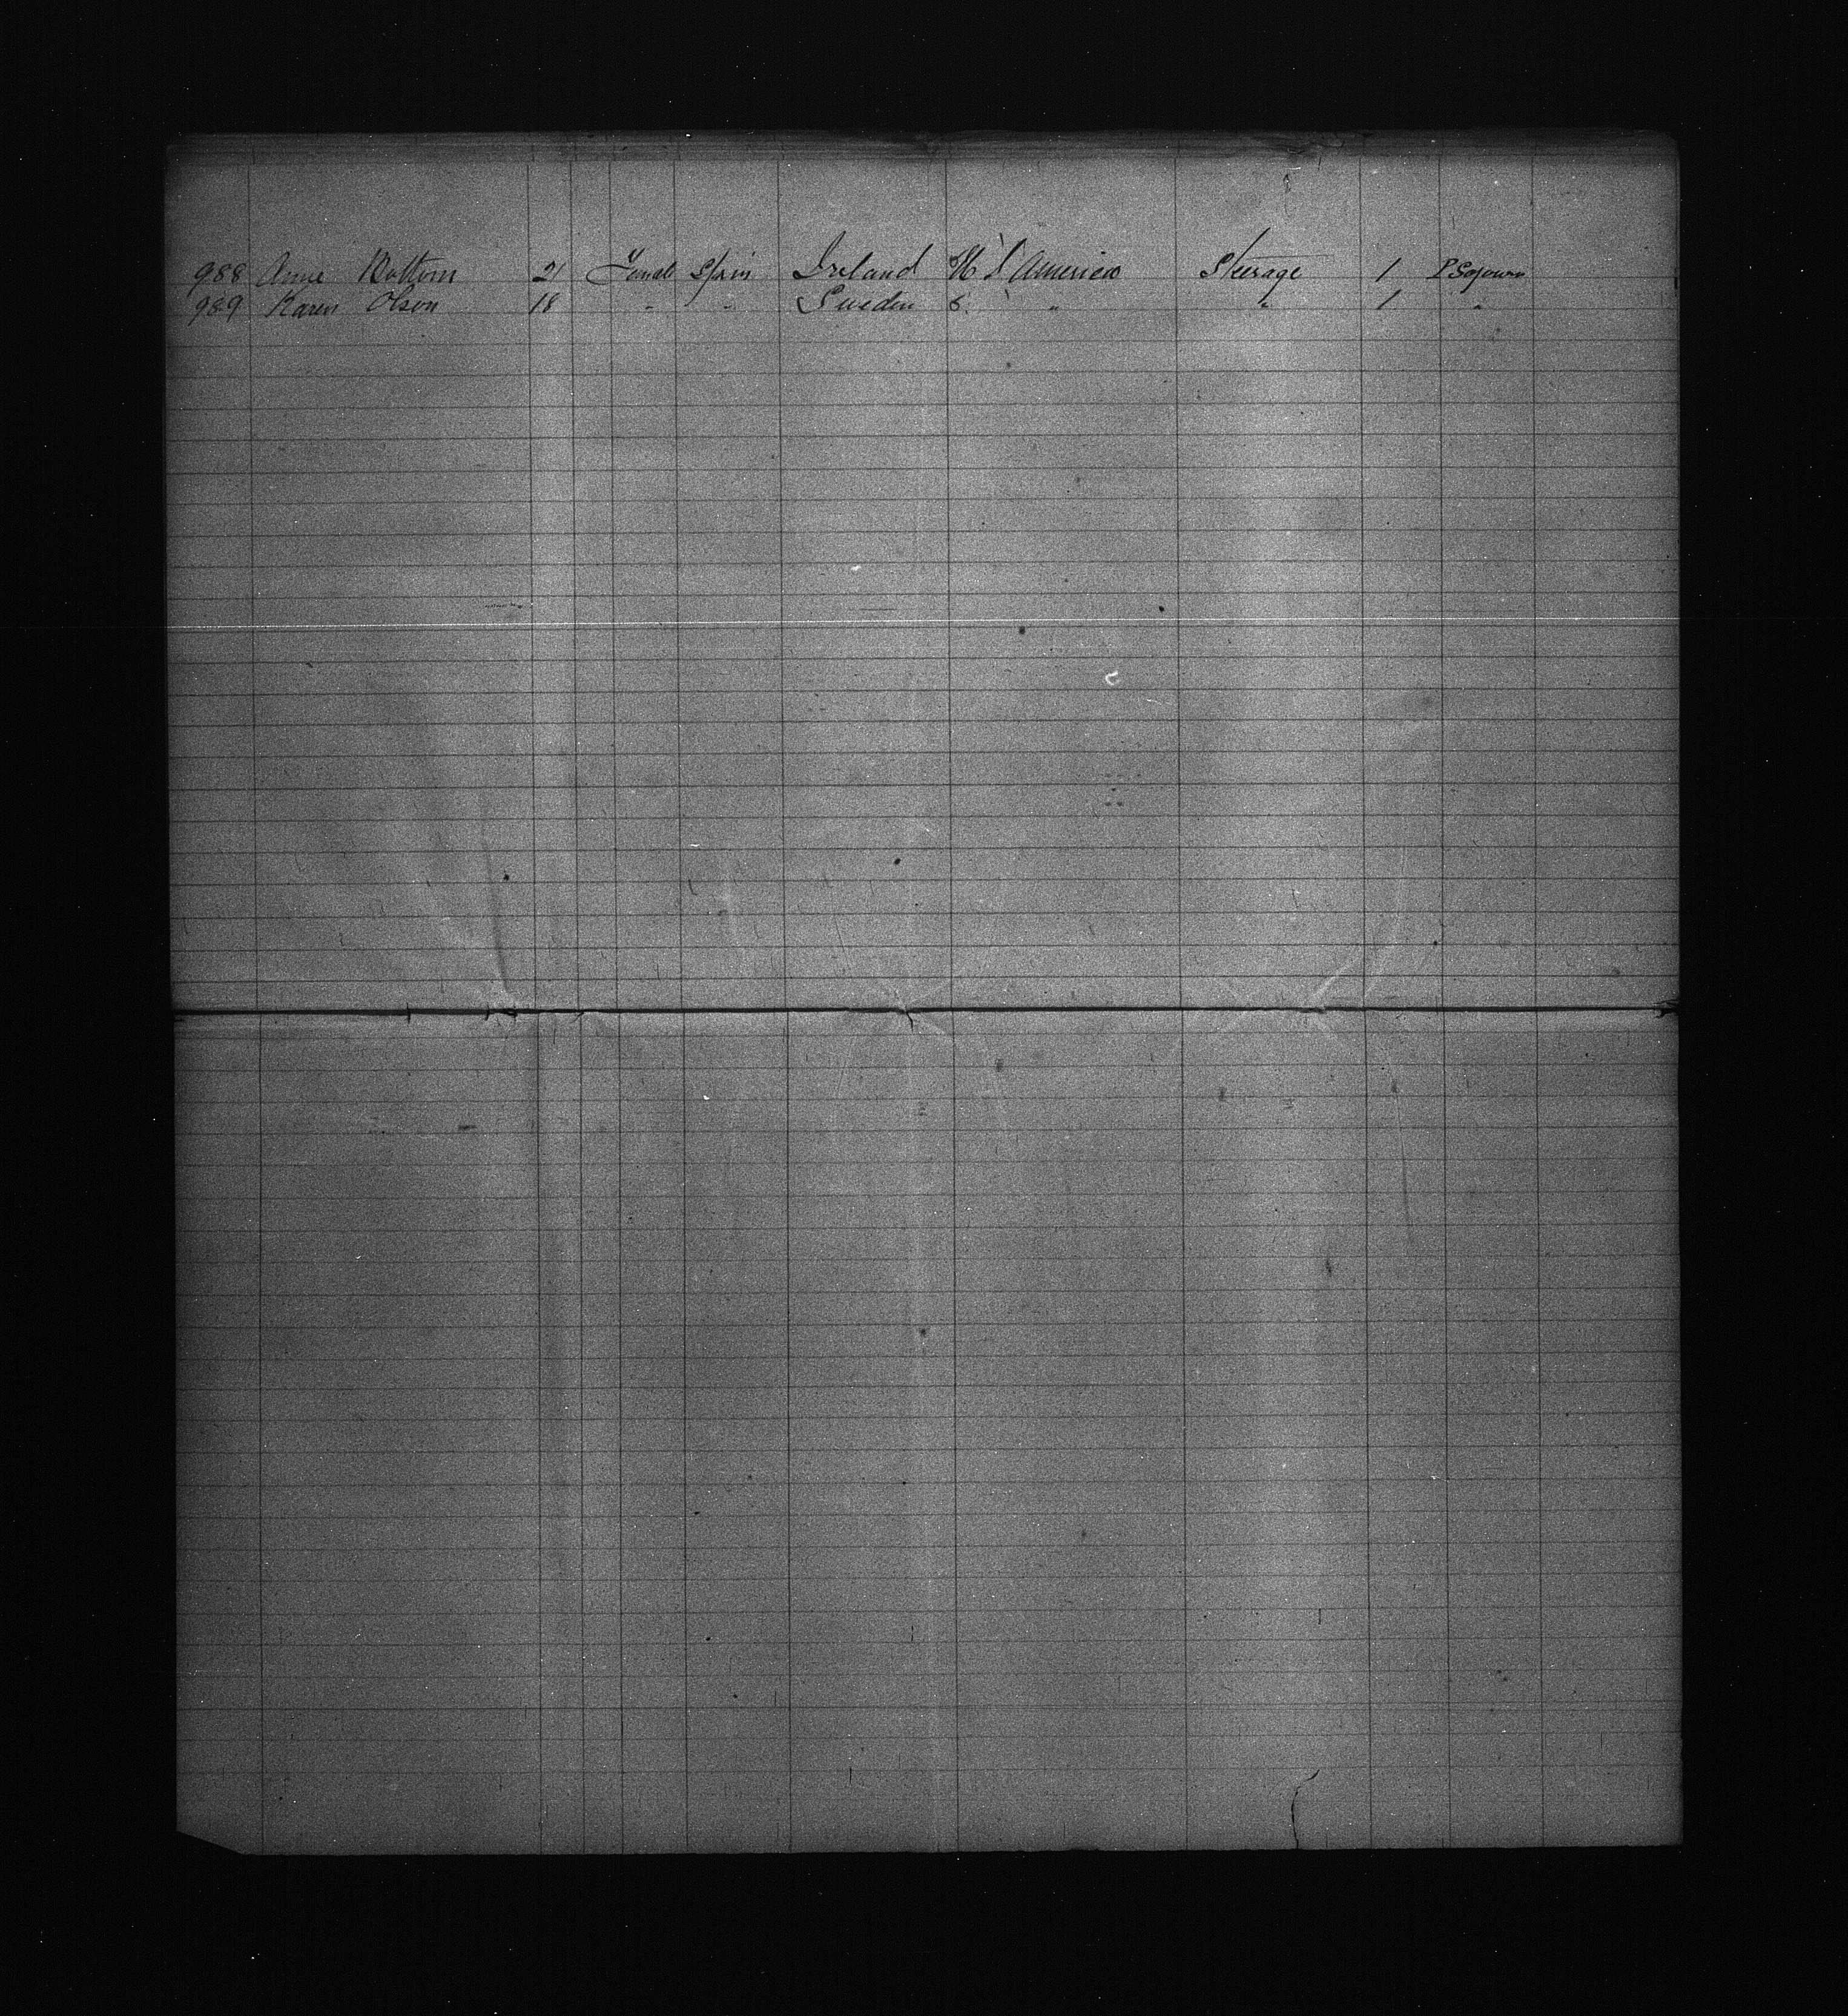 988 Anne Bottom 21 Female Spin Ireland U S America Steerage 1 P Sojourn
989 Karen Olson 18 " " Sweden " Steerage 1 "